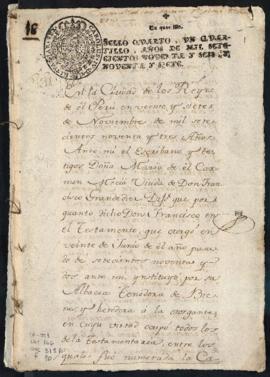 16
Un quartillo.
SELLO QUARTO, UN QUAR-
TILLO, AÑOS DE MIL SETE-
CIENTOS NOVENTA Y SEIS, Y
NOVENTA Y SIETE.
En la Ciudad de los Reyes
de el Perú en veinte y siete
de Noviembre de mil sete-
cientos noventa y tres Años
Ante mi el Escribano y tes-
tigos Doña Maria de el Car-
men Mecia Viuda de Don Fran-
cisco Grandeire Dijo que por
quanto dicho Don Francisco en
el Testamento, que otorgó en
veinte de Junio de el año pasa-
do de setecientos noventa y
dos ante mi instituyó, por su
Albacea Tenedora de Bie-
nes y heredera á la otorgante,
en cuya virtud todos los
de la testamentaria, entre los
quales fué numerada la Ca-